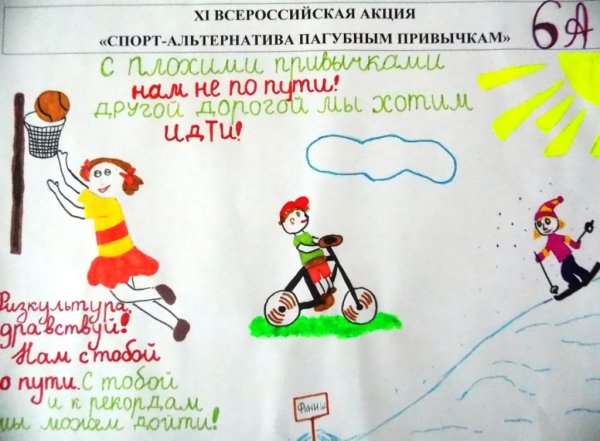 XI ВСЕРОССИЙСКАЯ АКЦИЯ
«СПОРТ-АЛЬТЕРНАТИВА ПАГУБНЫМ ПРИВЫЧКАМ»
6А
С плохими привычками
нам не по пути!
Другой дорогой мы хотим
идти!
Физкультура,
здравствуй!
Нам с тобой
о пути. С тобой
и к рекордам
мы можем дойти!
Финиш